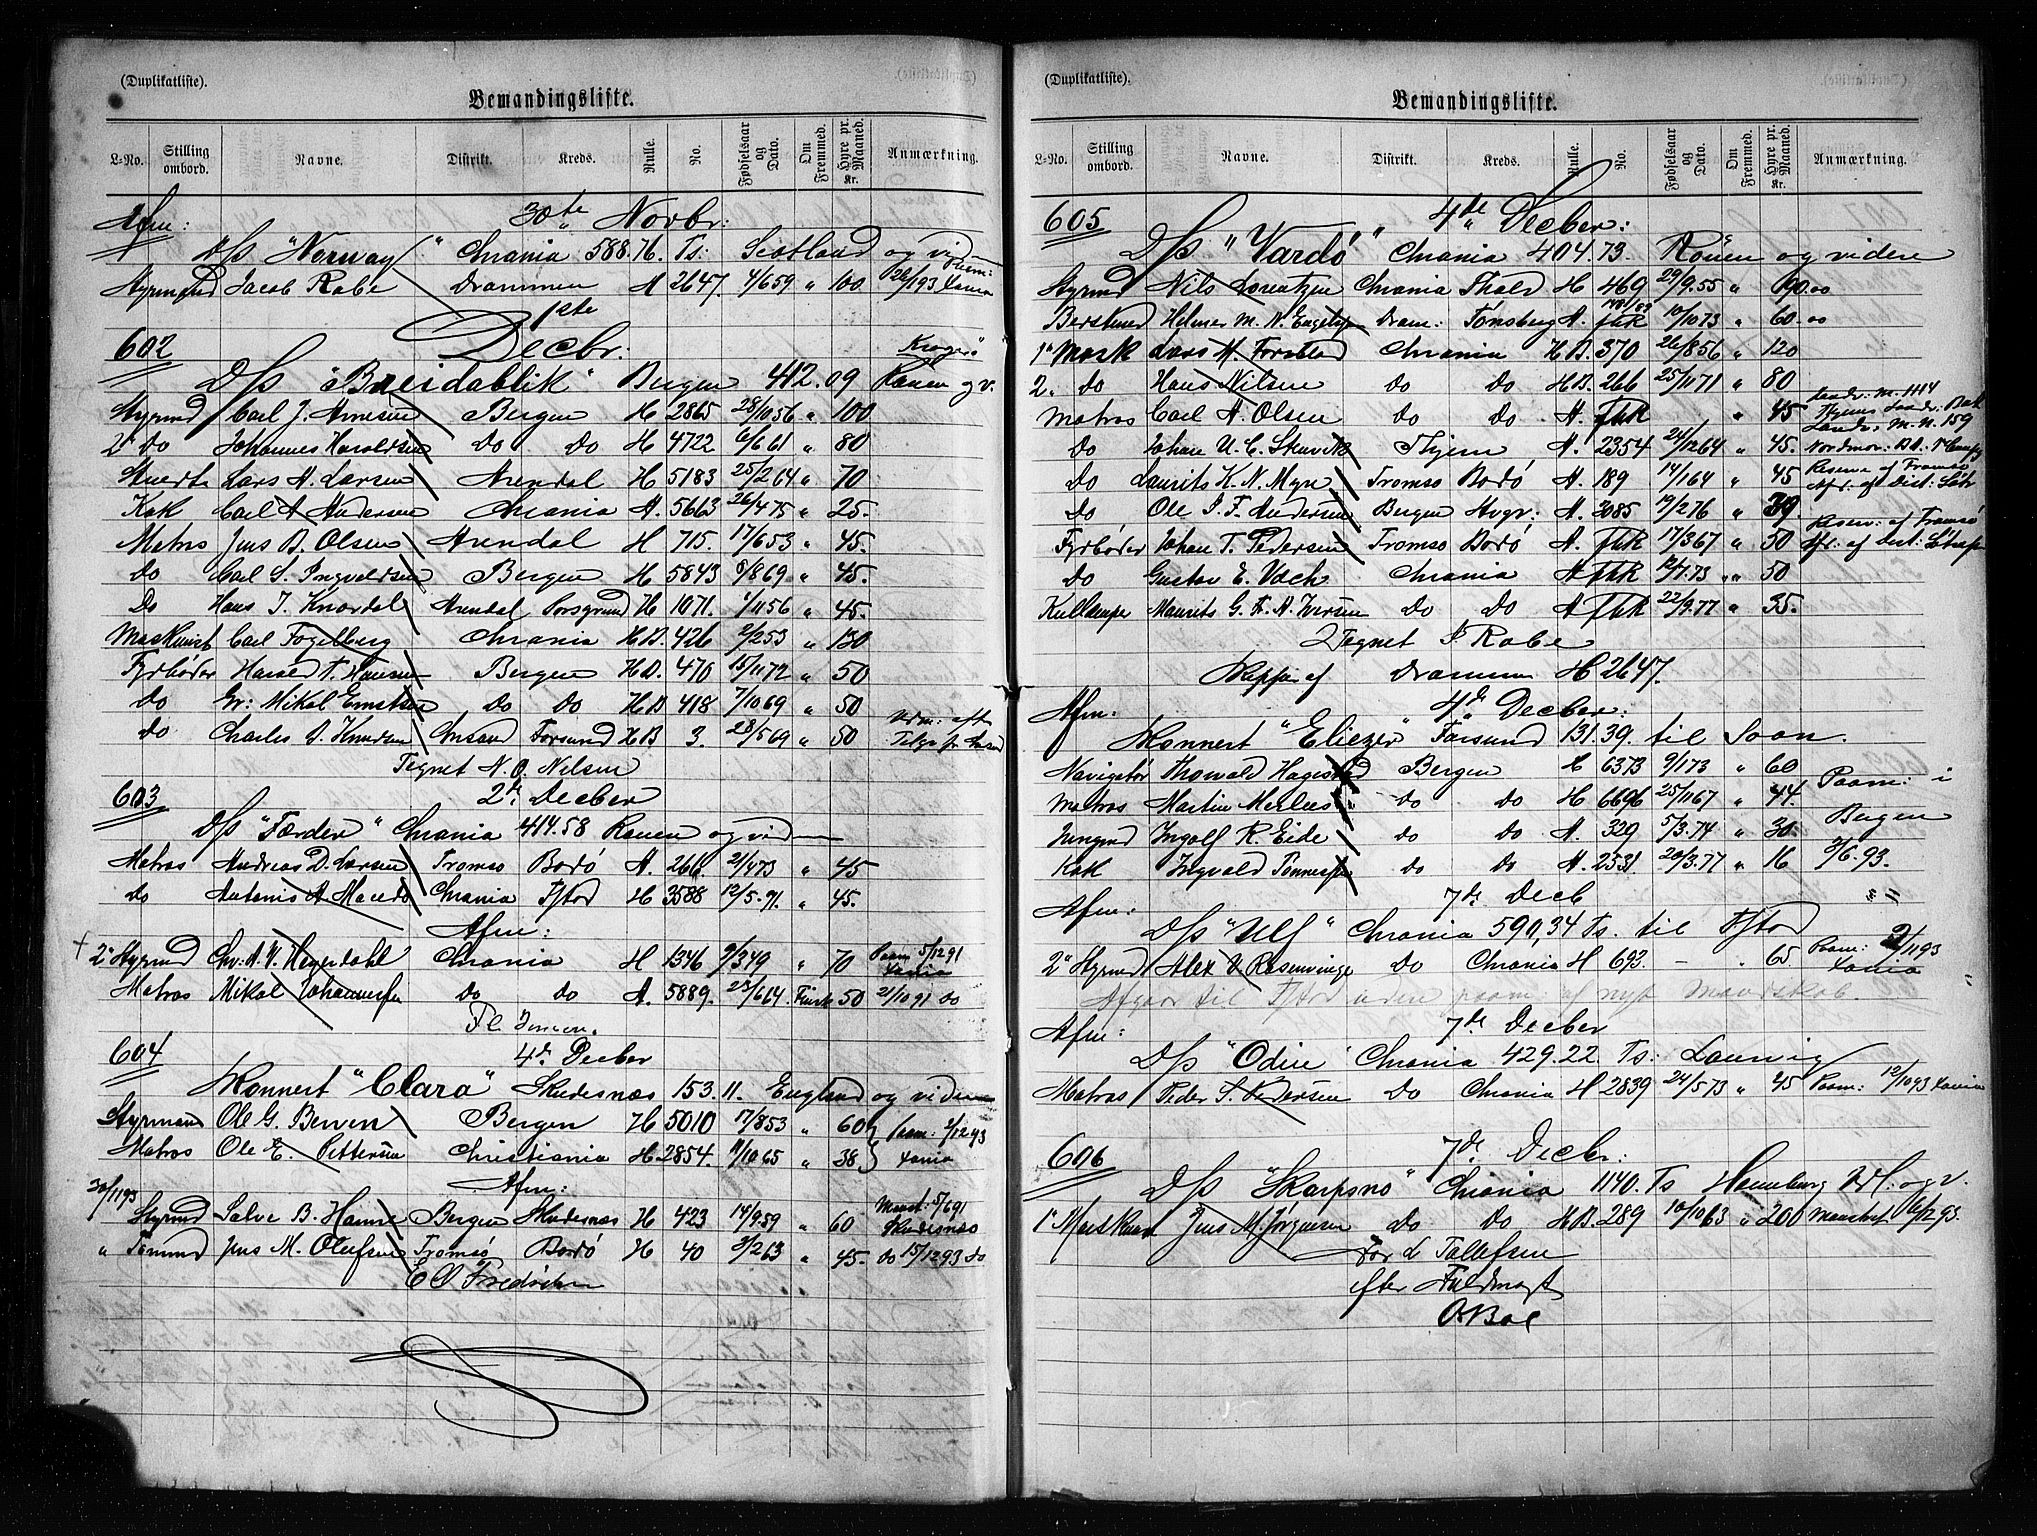 (Duplikatliste).
Bemandingsliste.
L-No. Stilling ombord. Navne. Distrikt. Kreds. Rulle. No. Fødselsaar og Dato. Om Fremmed. Hyre pr. Maaned. Kr. Anmærkning.
Afm: 30te Novbr:
D/S "Norway" Chrania 588.76. Ts: Scotland og vid
Styrmand Jacob Rabe Drammen A 2647. 4/659 " 100
1ste
602 Decbr.
D/S "Breidablik" Bergen 412.09 Rouen og v.
Styrmd Carl J. Arnesen Bergen H 2865 28/1056 " 100
2d Do Johannes Haraldsen Do Do H 4722 6/661 " 80
Stuert Lars A. Larsen Arendal H 5183 25/264 " 70
Kok Carl A Andersen Chrania A. 5663 26/475 " 25.
Matros Jens B. Olsen Arendal H 715. 17/653 " 45.
do Carl S. Ingvaldsen Bergen H 5843 5/869 " 45.
Do Hans J. Knardal Arendal Porsgrund H 1071. 1/1156 " 45.
Maskinist Carl Fogelberg Chrania H.B. 426 2/253 " 130
Fyrbøder Harald T. Hansen Bergen H.D. 470 15/1172 " 50
do Gr: Mikal Ernstsen do do H.D 418 7/1069 " 50
do Charles A. Knudsen Chrsand Farsund H.B 3. 28/569 " 50
Tegnet N. O. Nilsen
603 2de Decber
D/S "Færder" Chrania 414.58 Rouen og vid
Matros Andreas D. Larsen Tromsø Bodø A. 266. 21/473 " 45
do Antonis A Macedo Chrania F/stad H 3588 12/5.71. " 45.
Afm:
2d Styrmd Chr. A. V. Heyerdahl Chrania H 1346 9/349 " 70 Paam 5/1291 Xania
Matros Mikal Johannesen Do do A. 5889. 23/664 Finsk 50 21/1091 do
Fl Jensen.
604 4de Decber
Skonnert "Clara" Skudesnæs 153.11. England og videre
Styrmand Ole G. Berven Bergen H 5010 17/853 " 60 Paam: 2/1293
Matros Ole E. Pettersen Christiania H 2854. 11/1065 " 38 Xania
Afm:
30/1193
Styrmd Salve B. Hanne Bergen Skudesnæs H 423 14/959 " 60 Mønst: 5/691 Skudesnæs
" Tømmd Jens M. Olufsen Tromsø Bodø H 40 3/263 " 45 do 15/1293 do
E O Fredriksen
(Duplikatliste).
Bemandingsliste.
L-No. Stilling ombord. Navne. Distrikt. Kreds. Rulle. No. Fødselsaar og Dato. Om Fremmed. Hyre pr. Maaned. Kr. Anmærkning.
605 4de Decber:
D/S "Vardø" Chrania 404.73. Rouen og videre
Styrmd Nils Lorentzen Chrania Thold H 469 29/9.55 " 90.00
Bestmd Helmer M. N. Engelsen Dram: Tønsberg A. 10/1073 " 60.00
1ste Mask Lars M. Forsblad Chrania H.B. 370 26/856 " 120
2. do Hans Nilsen do do H.B. 266 25/1171 " 80
Matros Carl A. Olsen do do A. Fhk " 45
do Johan U. C. Skarvik Thjem A. 2354 24/1264 " 45.
Do Laurits K. N. Myre Tromsø Bodø A. 189 14/164 " 45 Reserve af Tromsø
do Ole P. F. Andersen Bergen Hvgr: A. 3085 19/276 " 39.
Fyrbøder Johan T. Pedersen Tromsø Bodø A. Fhk 17/367 " 50
do Gustav E. Udek Chrania A Fhk 12/1.73 " 50
Kullemper Maurits G. Fr. A. Iversen do do A Fhk 22/9.77 " 35.
Tegnet J. Rabe
Skipper af Drammen H 2647.
Afm: 4de Decber:
Skonnert "Eliezer" Farsund 131.39. til Soon.
Navigatør Thorvald Hagestad Bergen H 6373 9/173 " 60
Matros Martin Merløes do do H 6696 25/1167 " 44. Paam: i
Jungmd Ingolf R. Eide do do A. 329 5/3.74 " 30. Bergen
Kok Ingvald Tønnesen do do A. 2531 20/3.77 " 16 9/6.93.
Afm: 7de Decb
D/S "Ulf" Chrania 590,34 Ts. til F/stad
2d Styrmd Alex V. Rosenvinge do Chrania H 693. - . 65 Paam: 2/1193 Xania
Afgaar til F/stad uden paam af nyt Mandskab.
Afm: 7de Decber
D/S "Odin" Chrania 429.22. Ts: Laurvig
Matros Peder S. Pedersen Do Chrania H 2839 24/573 " 45 Paam: 12/1093 Xania
606 7de Decbr:
D/S "Skarpsno" Chrania 1140. Ts Hamburg og v.
1ste Maskinist Jens M. Jørgensen do do H.B. 289 10/1063 " 200 Mønstret 6/1293.
For L Tallefsen
efter Fuldmagt
O. Boe